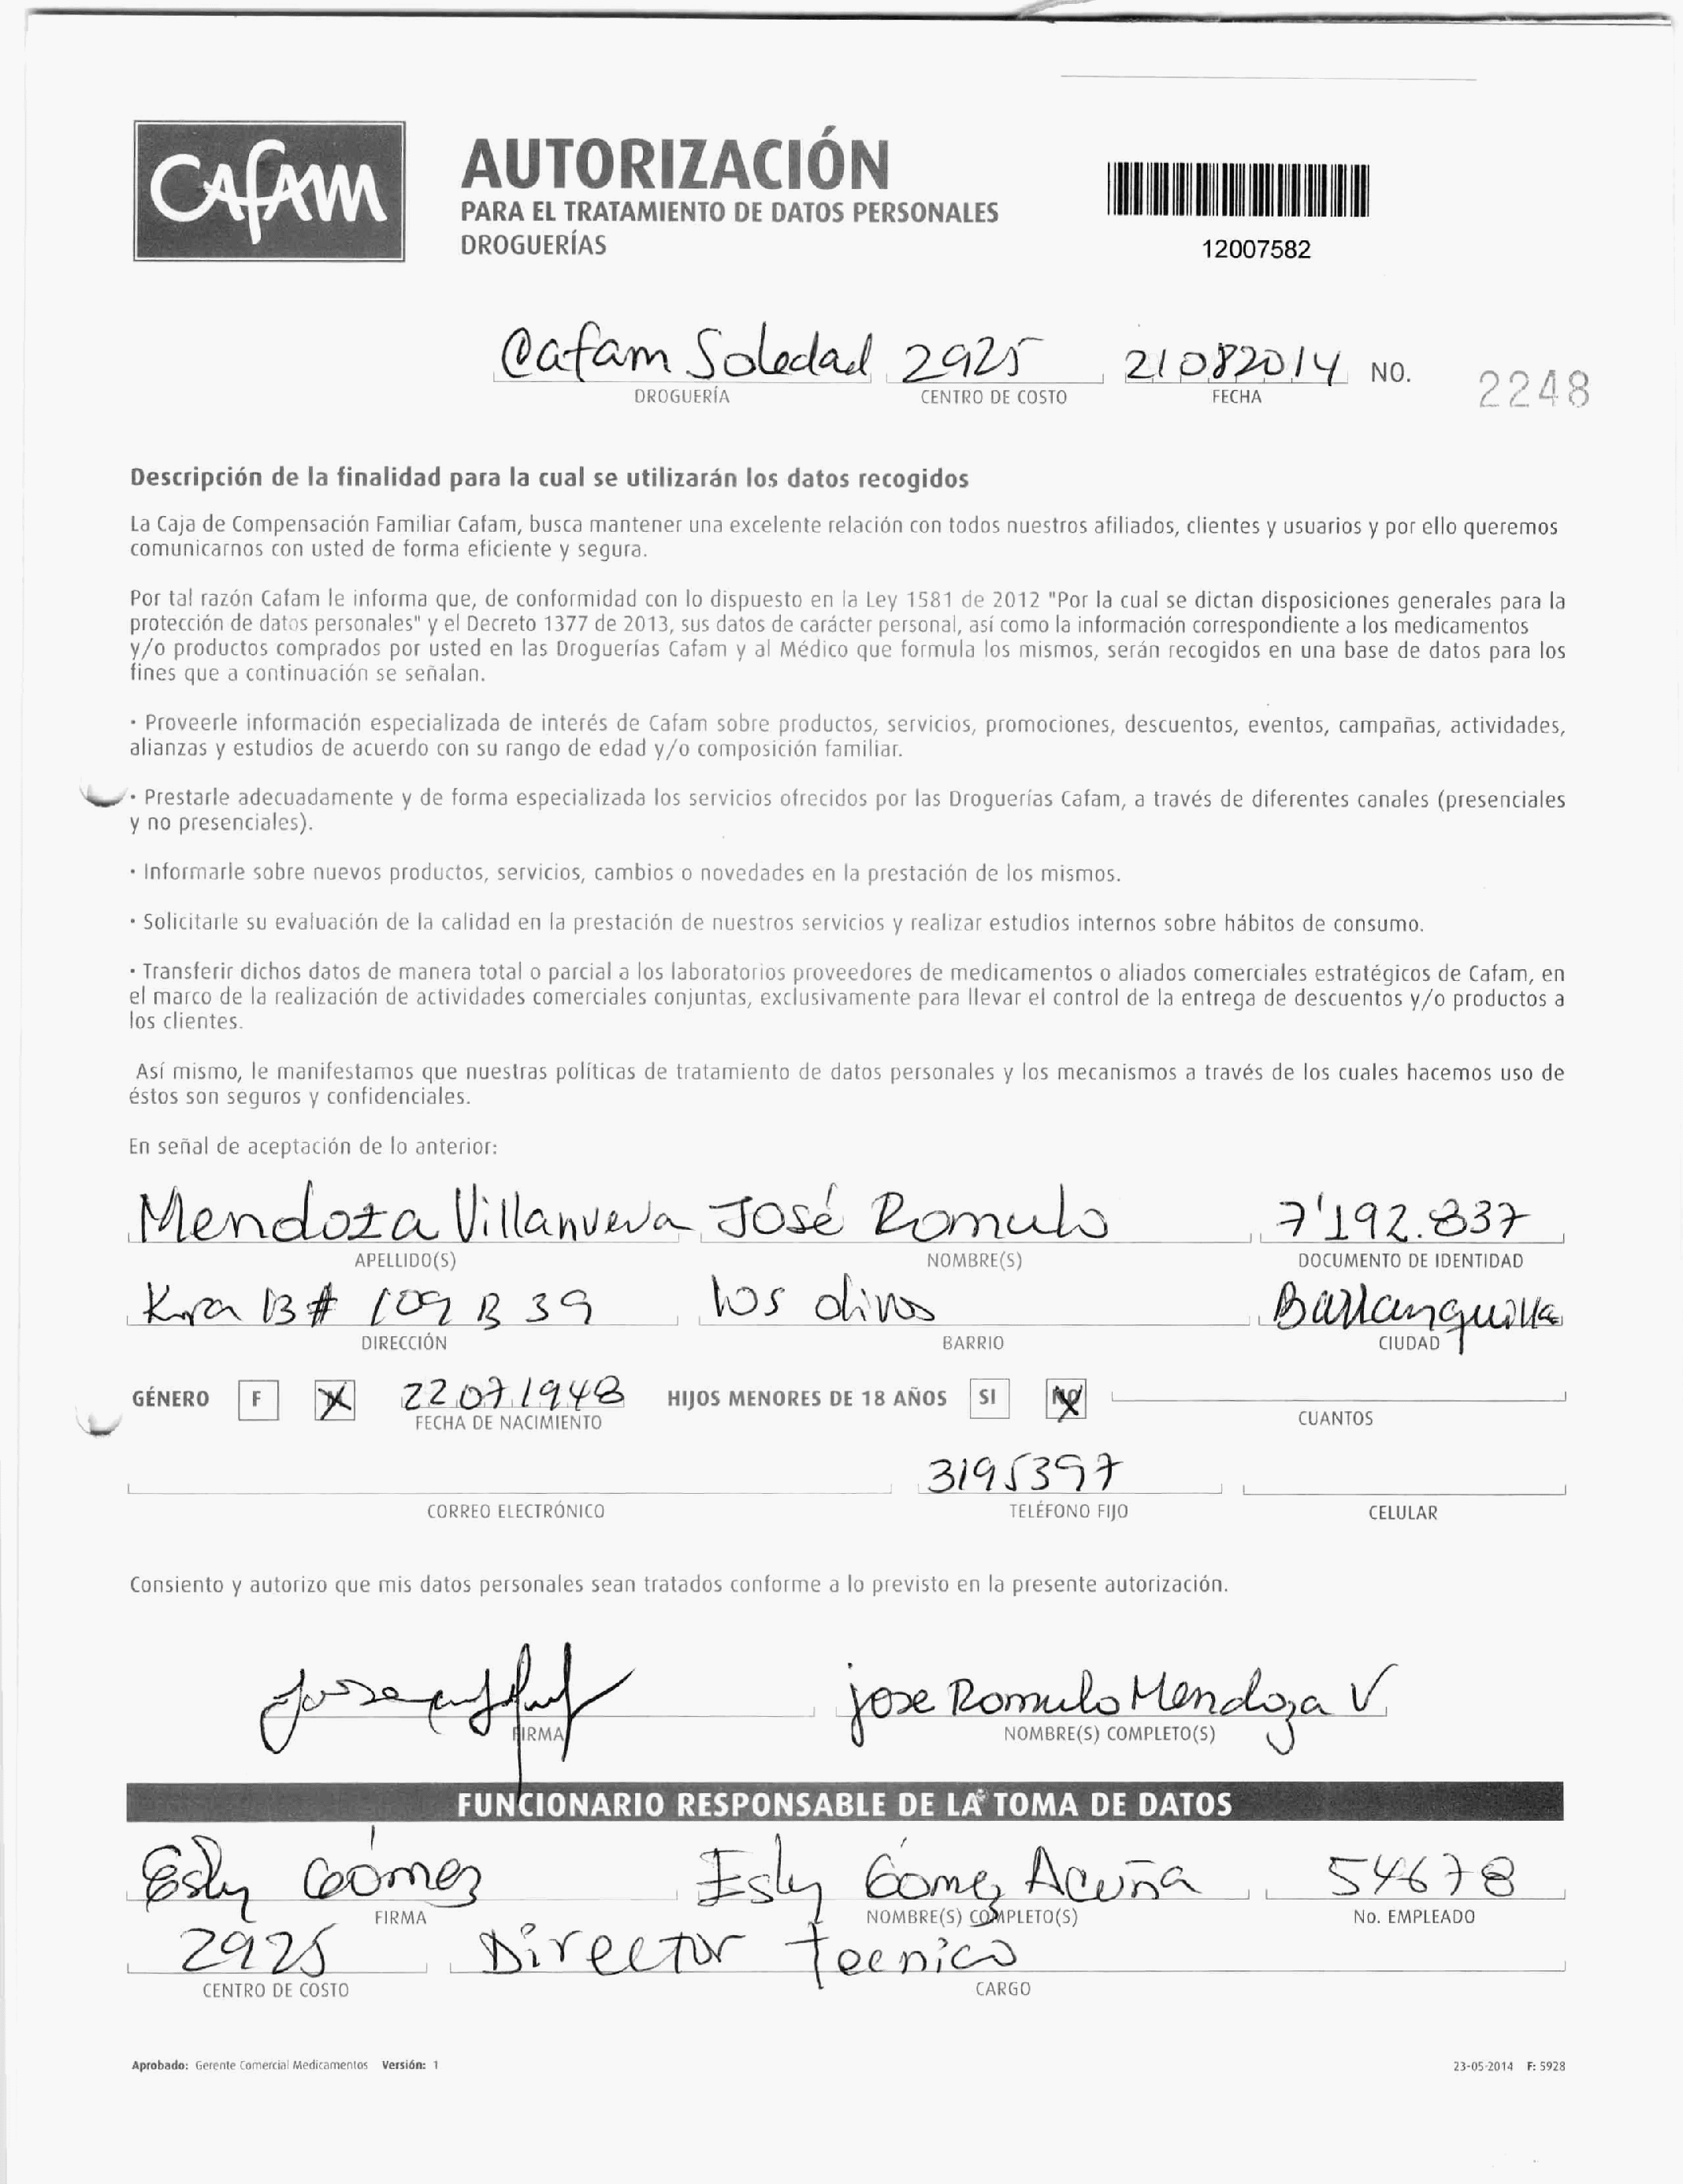 Cafam
AUTORIZACIÓN
PARA EL TRATAMIENTO DE DATOS PERSONALES
DROGUERÍAS
12007582
Cafam Soledad 2925 21082014 NO. 2248
DROGUERÍA CENTRO DE COSTO FECHA
Descripción de la finalidad para la cual se utilizarán los datos recogidos
La Caja de Compensación Familiar Cafam, busca mantener una excelente relación con todos nuestros afiliados, clientes y usuarios y por ello queremos
comunicarnos con usted de forma eficiente y segura.
Por tal razón Cafam le informa que, de conformidad con lo dispuesto en la Ley 1581 de 2012 "Por la cual se dictan disposiciones generales para la
protección de datos personales" y el Decreto 1377 de 2013, sus datos de carácter personal, así como la información correspondiente a los medicamentos
y/o productos comprados por usted en las Droguerías Cafam y al Médico que formula los mismos, serán recogidos en una base de datos para los
fines que a continuación se señalan.
· Proveerle información especializada de interés de Cafam sobre productos, servicios, promociones, descuentos, eventos, campañas, actividades,
alianzas y estudios de acuerdo con su rango de edad y/o composición familiar.
· Prestarle adecuadamente y de forma especializada los servicios ofrecidos por las Droguerías Cafam, a través de diferentes canales (presenciales
y no presenciales).
· Informarle sobre nuevos productos, servicios, cambios o novedades en la prestación de los mismos.
· Solicitarle su evaluación de la calidad en la prestación de nuestros servicios y realizar estudios internos sobre hábitos de consumo.
· Transferir dichos datos de manera total o parcial a los laboratorios proveedores de medicamentos o aliados comerciales estratégicos de Cafam, en
el marco de la realización de actividades comerciales conjuntas, exclusivamente para llevar el control de la entrega de descuentos y/o productos a
los clientes.
Así mismo, le manifestamos que nuestras políticas de tratamiento de datos personales y los mecanismos a través de los cuales hacemos uso de
éstos son seguros y confidenciales.
En señal de aceptación de lo anterior:
Mendoza Villanueva José Romulo 7'192.837
APELLIDO(S) NOMBRE(S) DOCUMENTO DE IDENTIDAD
Kra 13 # 109 B 39 los olivos Barranquilla
DIRECCIÓN BARRIO CIUDAD
GÉNERO F 22071948 HIJOS MENORES DE 18 AÑOS SI NO
FECHA DE NACIMIENTO CUANTOS
3195397
CORREO ELECTRÓNICO TELÉFONO FIJO CELULAR
Consiento y autorizo que mis datos personales sean tratados conforme a lo previsto en la presente autorización.
jose Romulo Mendoza V
FIRMA NOMBRE(S) COMPLETO(S)
FUNCIONARIO RESPONSABLE DE LA TOMA DE DATOS
Esly Gómez Esly Gómez Acuña 54678
FIRMA NOMBRE(S) COMPLETO(S) No. EMPLEADO
2925 Director Tecnico
CENTRO DE COSTO CARGO
Aprobado: Gerente Comercial Medicamentos Versión: 1 23-05-2014 F: 5928